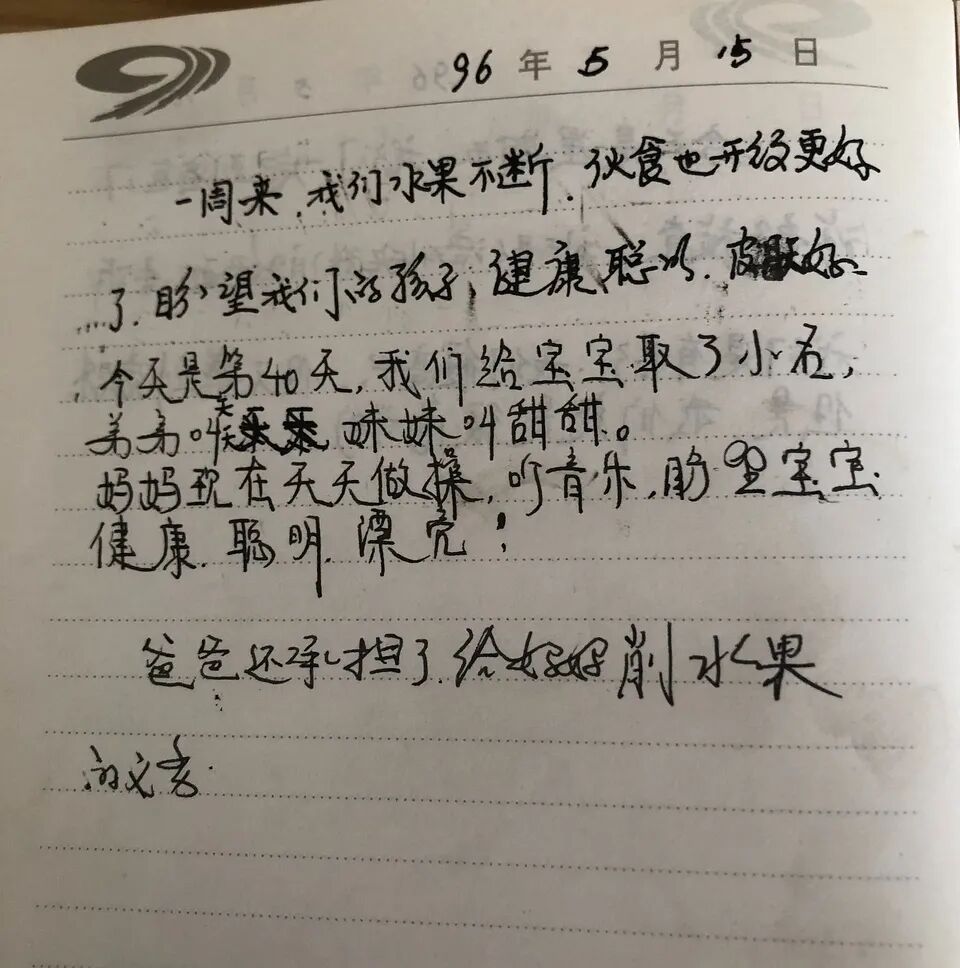 96年5月15日
一周来,我们水果不断,伙食也开始更好
了,盼望我们的孩子,健康、聪明、皮肤好、
今天是第40天,我们给宝宝取了小名,
弟弟叫天天 妹妹叫甜甜。
妈妈现在天天做操,听音乐,盼望宝宝
健康、聪明、漂亮!
爸爸还承担了给妈妈削水果
的义务.